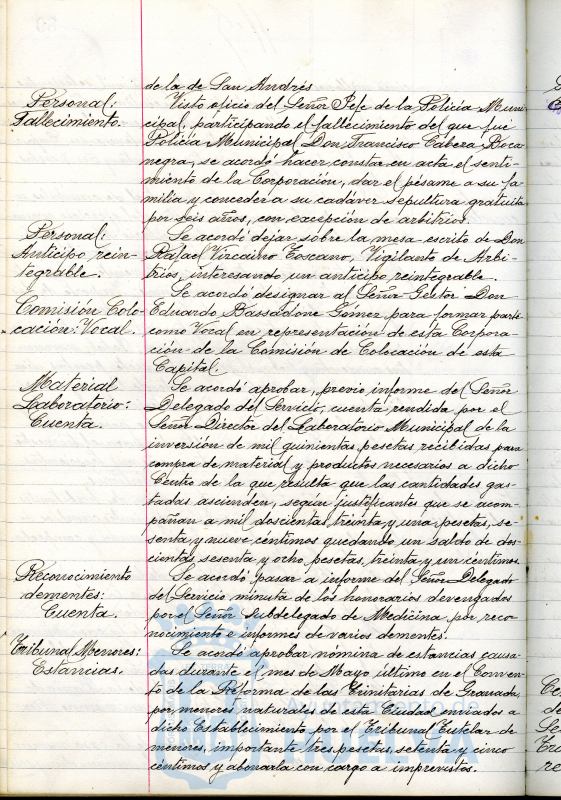 de la de San Andrés
Personal:
Fallecimiento.
Visto oficio del Señor Jefe de la Policía Muni-
cipal, participando el fallecimiento del que fué
Policía Municipal Don Francisco Cabera Boca-
negra, se acordó hacer constar en acta el senti-
miento de la Corporación, dar el pésame a su fa-
milia y conceder a su cadáver sepultura gratuita
por seis años, con excepción de arbitrios.
Personal:
Anticipo rein-
tegrable.
Se acordó dejar sobre la mesa escrito de Don
Rafael Vizcaino Toscano, Vigilante de Arbi-
trios, interesando un anticipo reintegrable.
Comisión Colo-
cación: Vocal.
Se acordó designar al Señor Gestor Don
Eduardo Bassadone Gómez para formar parte
como Vocal en representación de esta Corpora-
ción de la Comisión de Colocación de esta
Capital.
Material
Laboratorio:
Cuenta.
Se acordó aprobar, previo informe del Señor
Delegado del Servicio, cuenta rendida por el
Señor Director del Laboratorio Municipal de la
inversión de mil quinientas pesetas recibidas para
compra de material y productos necesarios a dicho
Centro de la que resulta que las cantidades gas-
tadas ascienden, según justificantes que se acom-
pañan a mil doscientas treinta y una pesetas, se-
senta y nueve céntimos quedando un saldo de dos-
cientas sesenta y ocho pesetas, treinta y un céntimos.
Reconocimiento
dementes:
Cuenta.
Se acordó pasar a informe del Señor Delegado
del Servicio minuta de los honorarios devengados
por el Señor Subdelegado de Medicina, por reco-
nocimiento e informes de varios dementes.
Tribunal Menores:
Estancias.
Se acordó aprobar nómina de estancias causa-
das durante el mes de Mayo último en el Conven-
to de la Reforma de las Trinitarias de Granada,
por menores naturales de esta Ciudad enviados a
dicho Establecimiento por el Tribunal Tutelar de
menores, importante tres pesetas, setenta y cinco
céntimos y abonarla con cargo a imprevistos.